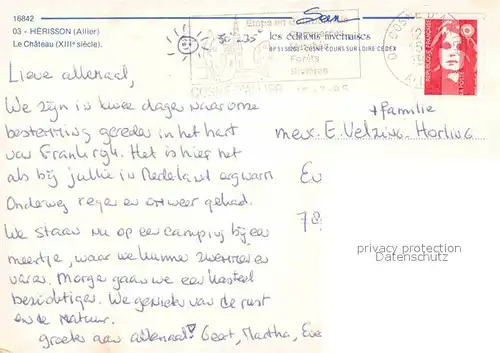 16842
03 - HÉRISSON (Allier)
Le Château (XIIIe siècle).
les éditions nivernaises
BP 31 58203 - COSNE COURS SUR LOIRE CEDEX
Forêts
Rivières
REPUBLIQUE FRANÇAISE
LA POSTE
Lieve allemaal,
We zijn in twee dagen naar onze
bestemming gereden in het hart
van Frankrijk. Het is hier net
als bij jullie in Nederland erg warm
Onderweg regen en onweer gehad.
We staan nu op een camping bij een
meertje, waar we kunnen zwemmen en
varen. Morgen gaan we een kasteel
bezichtigen. We genieten van de rust
en de natuur.
groeten aan allemaal! Geert, Martha, Eve
+ familie
mevr. E. Velzing-Horling
Ev
78
privacy protection
Datenschutz